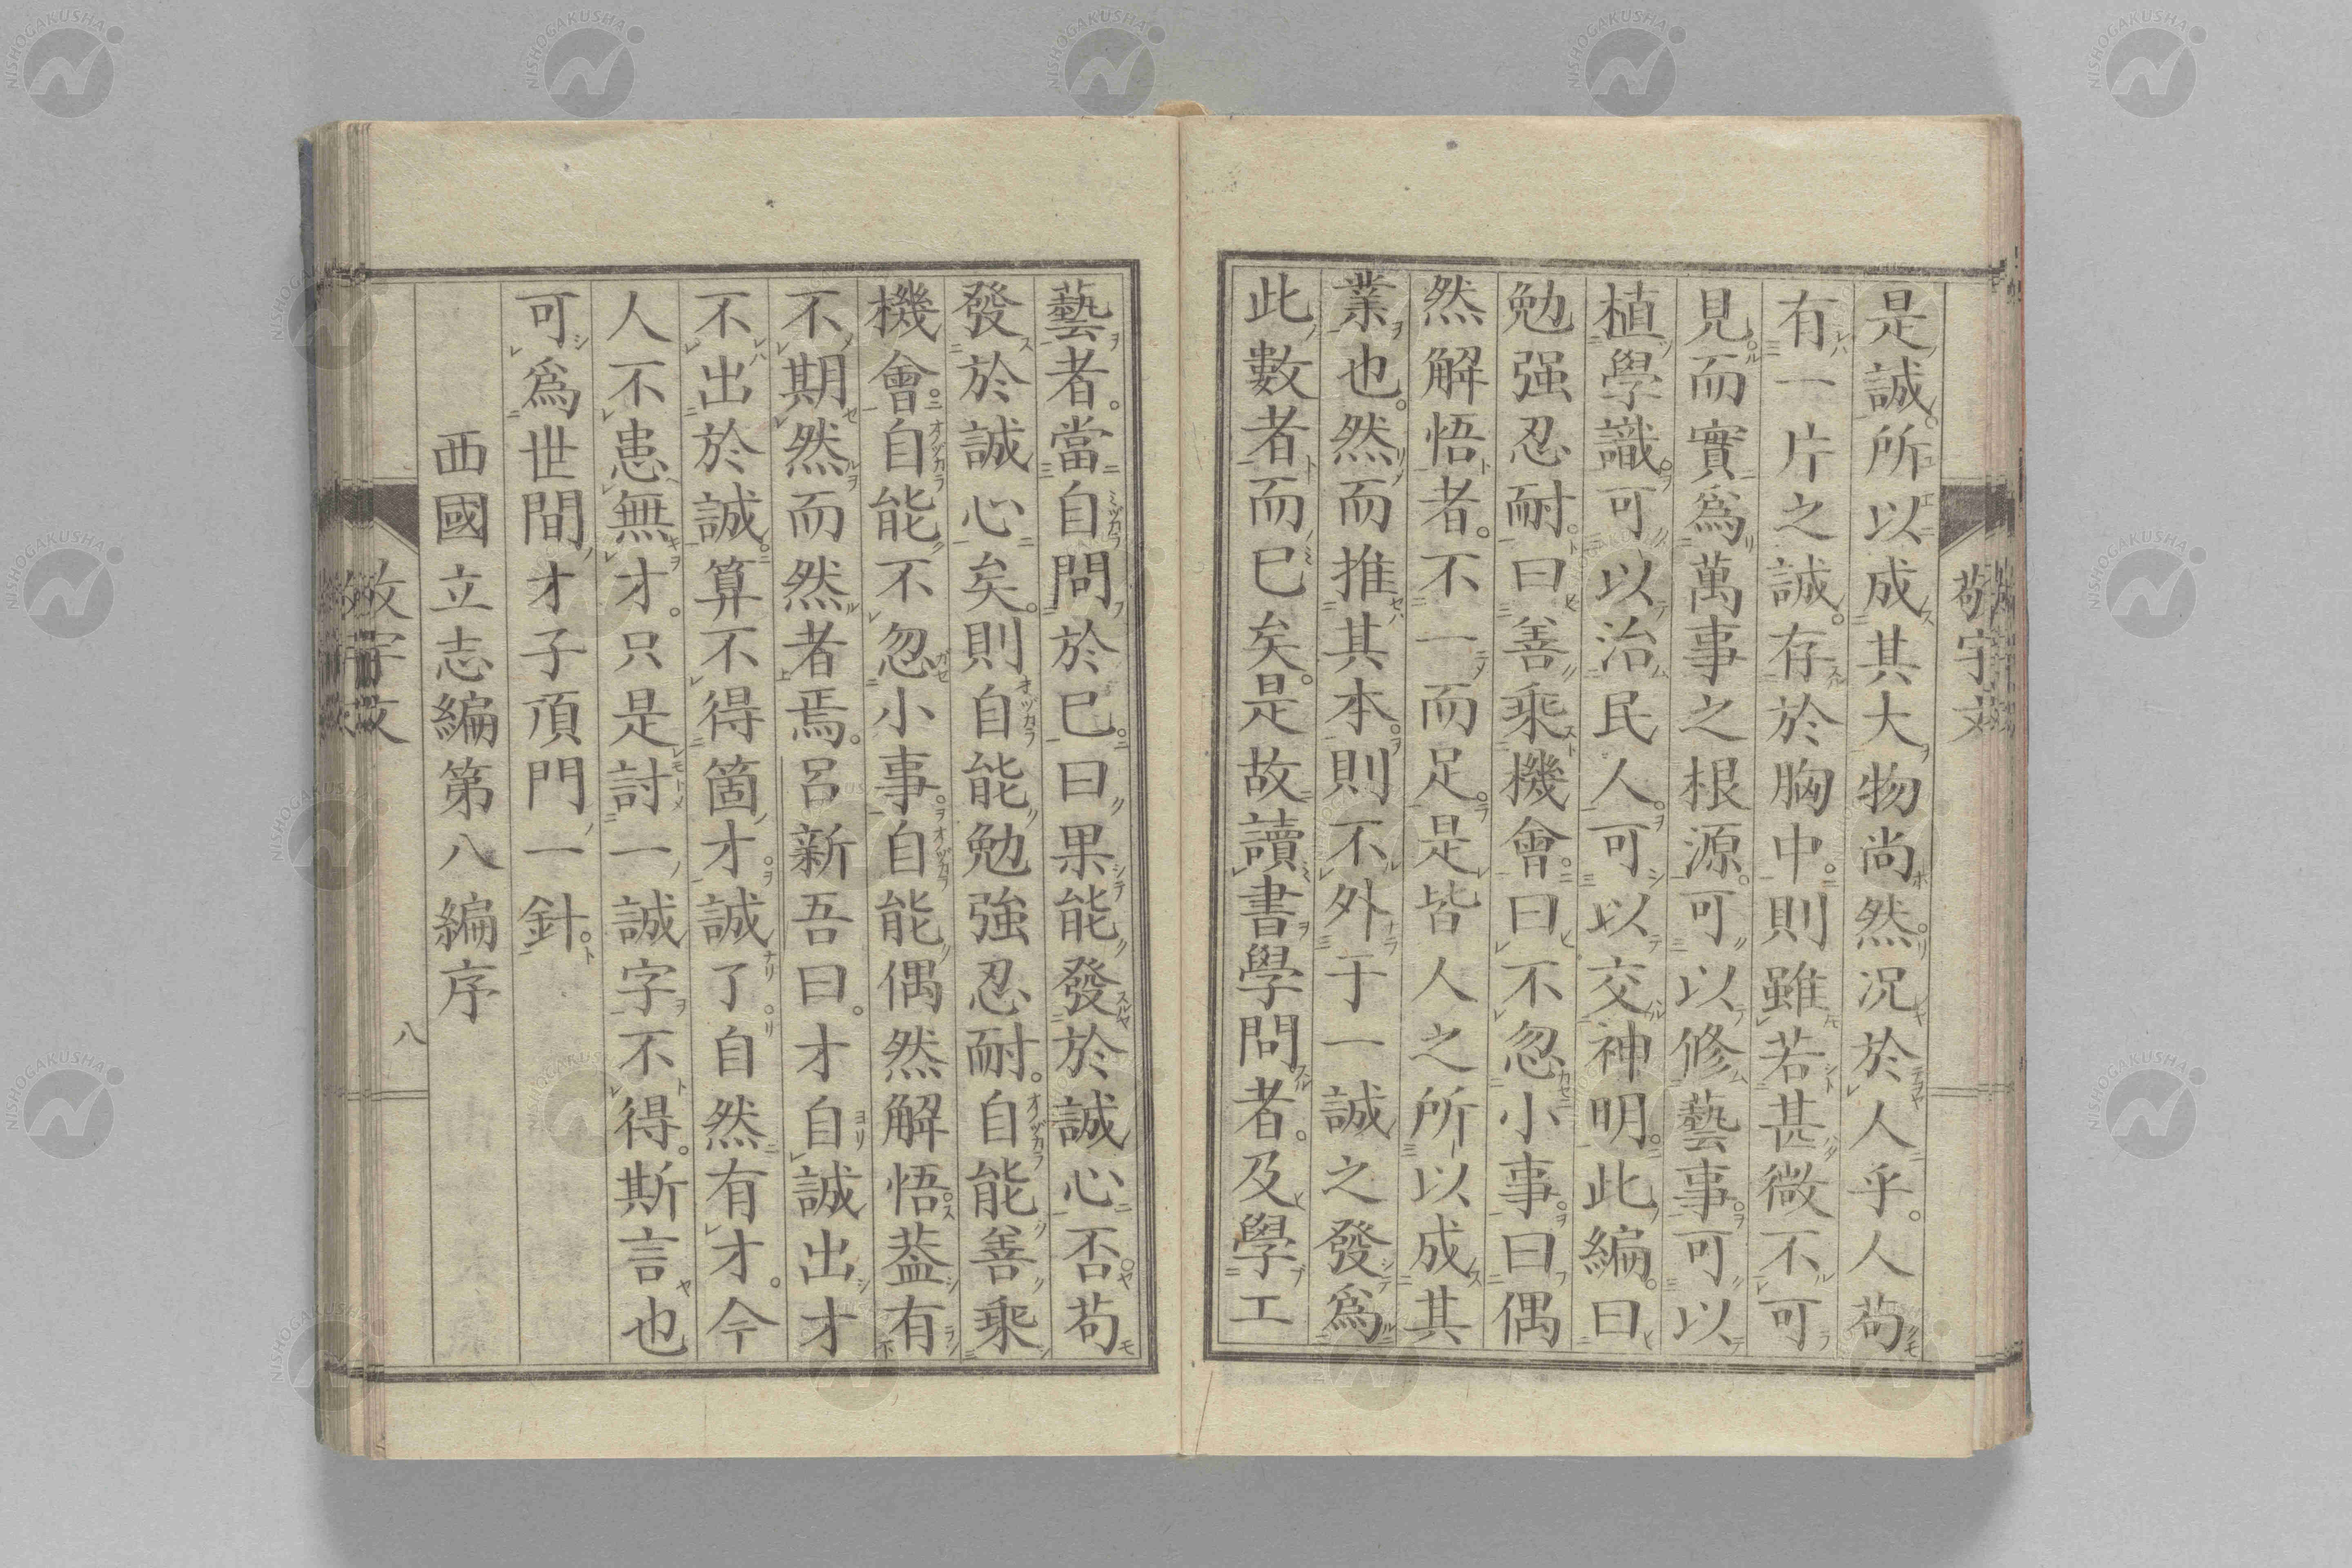 是誠。所以成其大物尚然。況於人乎。人苟
有一片之誠。存於胸中。則雖若甚微不可
見。而實爲萬事之根源。可以修藝事。可以
植學識。可以治民人。可以交神明。此編。曰
勉强忍耐。曰善乘機會。曰不忽小事。曰偶
然解悟者。不一而足。是皆人之所以成其
業也。然而推其本。則不外于一誠之發爲
此數者而已矣。是故讀書學問者。及學工
藝者。當自問於已。曰果能發於誠心否。苟
發於誠心矣。則自能勉強忍耐。自能善乘
機會。自能不忽小事。自能偶然解悟。葢有
不期然而然者焉。呂新吾曰。才自誠出才
不出於誠。算不得箇才。誠了。自然有才。今
人不患無才。只是討一誠字不得。斯言也
可爲世間才子頂門一針。
西國立志編第八編序
敬宇文
八
NISHOGAKUSHA